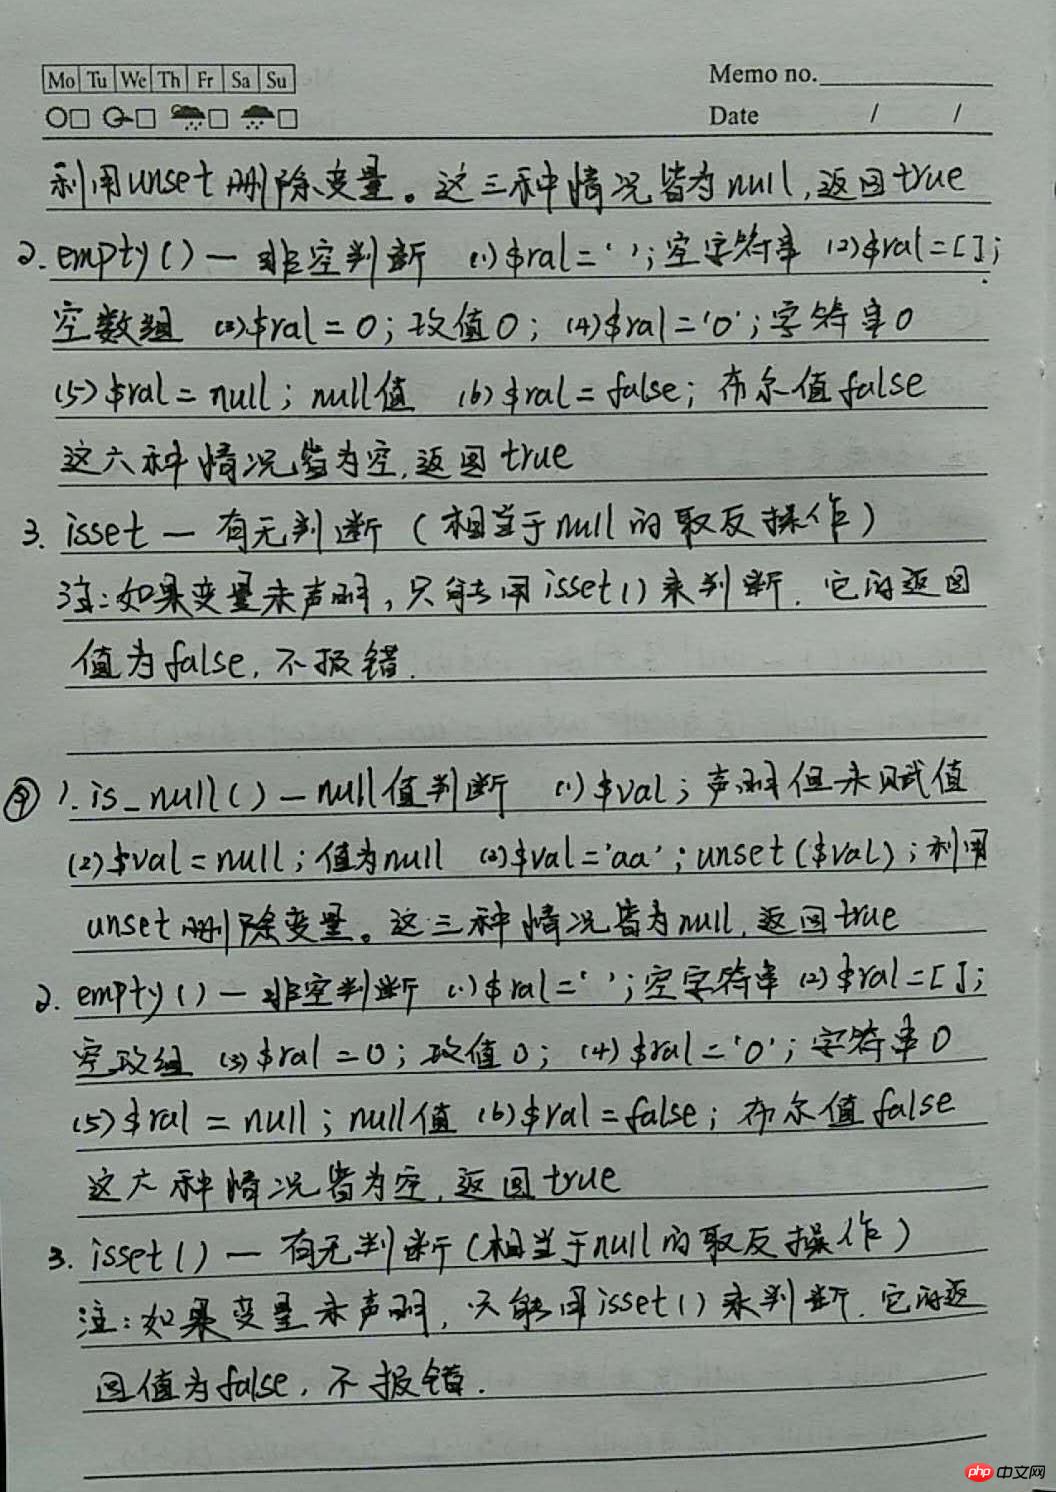 Mo Tu We Th Fr Sa Su
Memo no.
Date / /
利用unset删除变量。这三种情况皆为null,返回true
2. empty()—非空判断 (1)$ral=' ';空字符串 (2)$ral=[];
空数组 (3)$ral=0;数值0; (4)$ral='0';字符串0
(5)$ral=null;null值 (6)$ral=false;布尔值false
这六种情况皆为空,返回true
3. isset—有无判断(相当于null的取反操作)
注:如果变量未声明,只能用isset()来判断.它的返回
值为false,不报错.
④ 1. is_null()—null值判断 (1)$val;声明但未赋值
(2)$val=null;值为null (3)$val='aa';unset($val);利用
unset删除变量。这三种情况皆为null,返回true
2. empty()—非空判断 (1)$ral=' ';空字符串 (2)$ral=[];
空数组 (3)$ral=0;数值0; (4)$ral='0';字符串0
(5)$ral=null;null值 (6)$ral=false;布尔值false
这六种情况皆为空,返回true
3. isset()—有无判断(相当于null的取反操作)
注:如果变量未声明,只能用isset()来判断.它的返
回值为false,不报错.
php 中文网